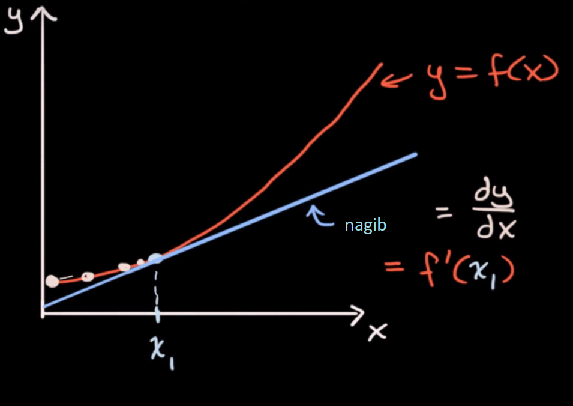 y
y = f(x)
nagib
= dy/dx
= f'(x₁)
x
x₁